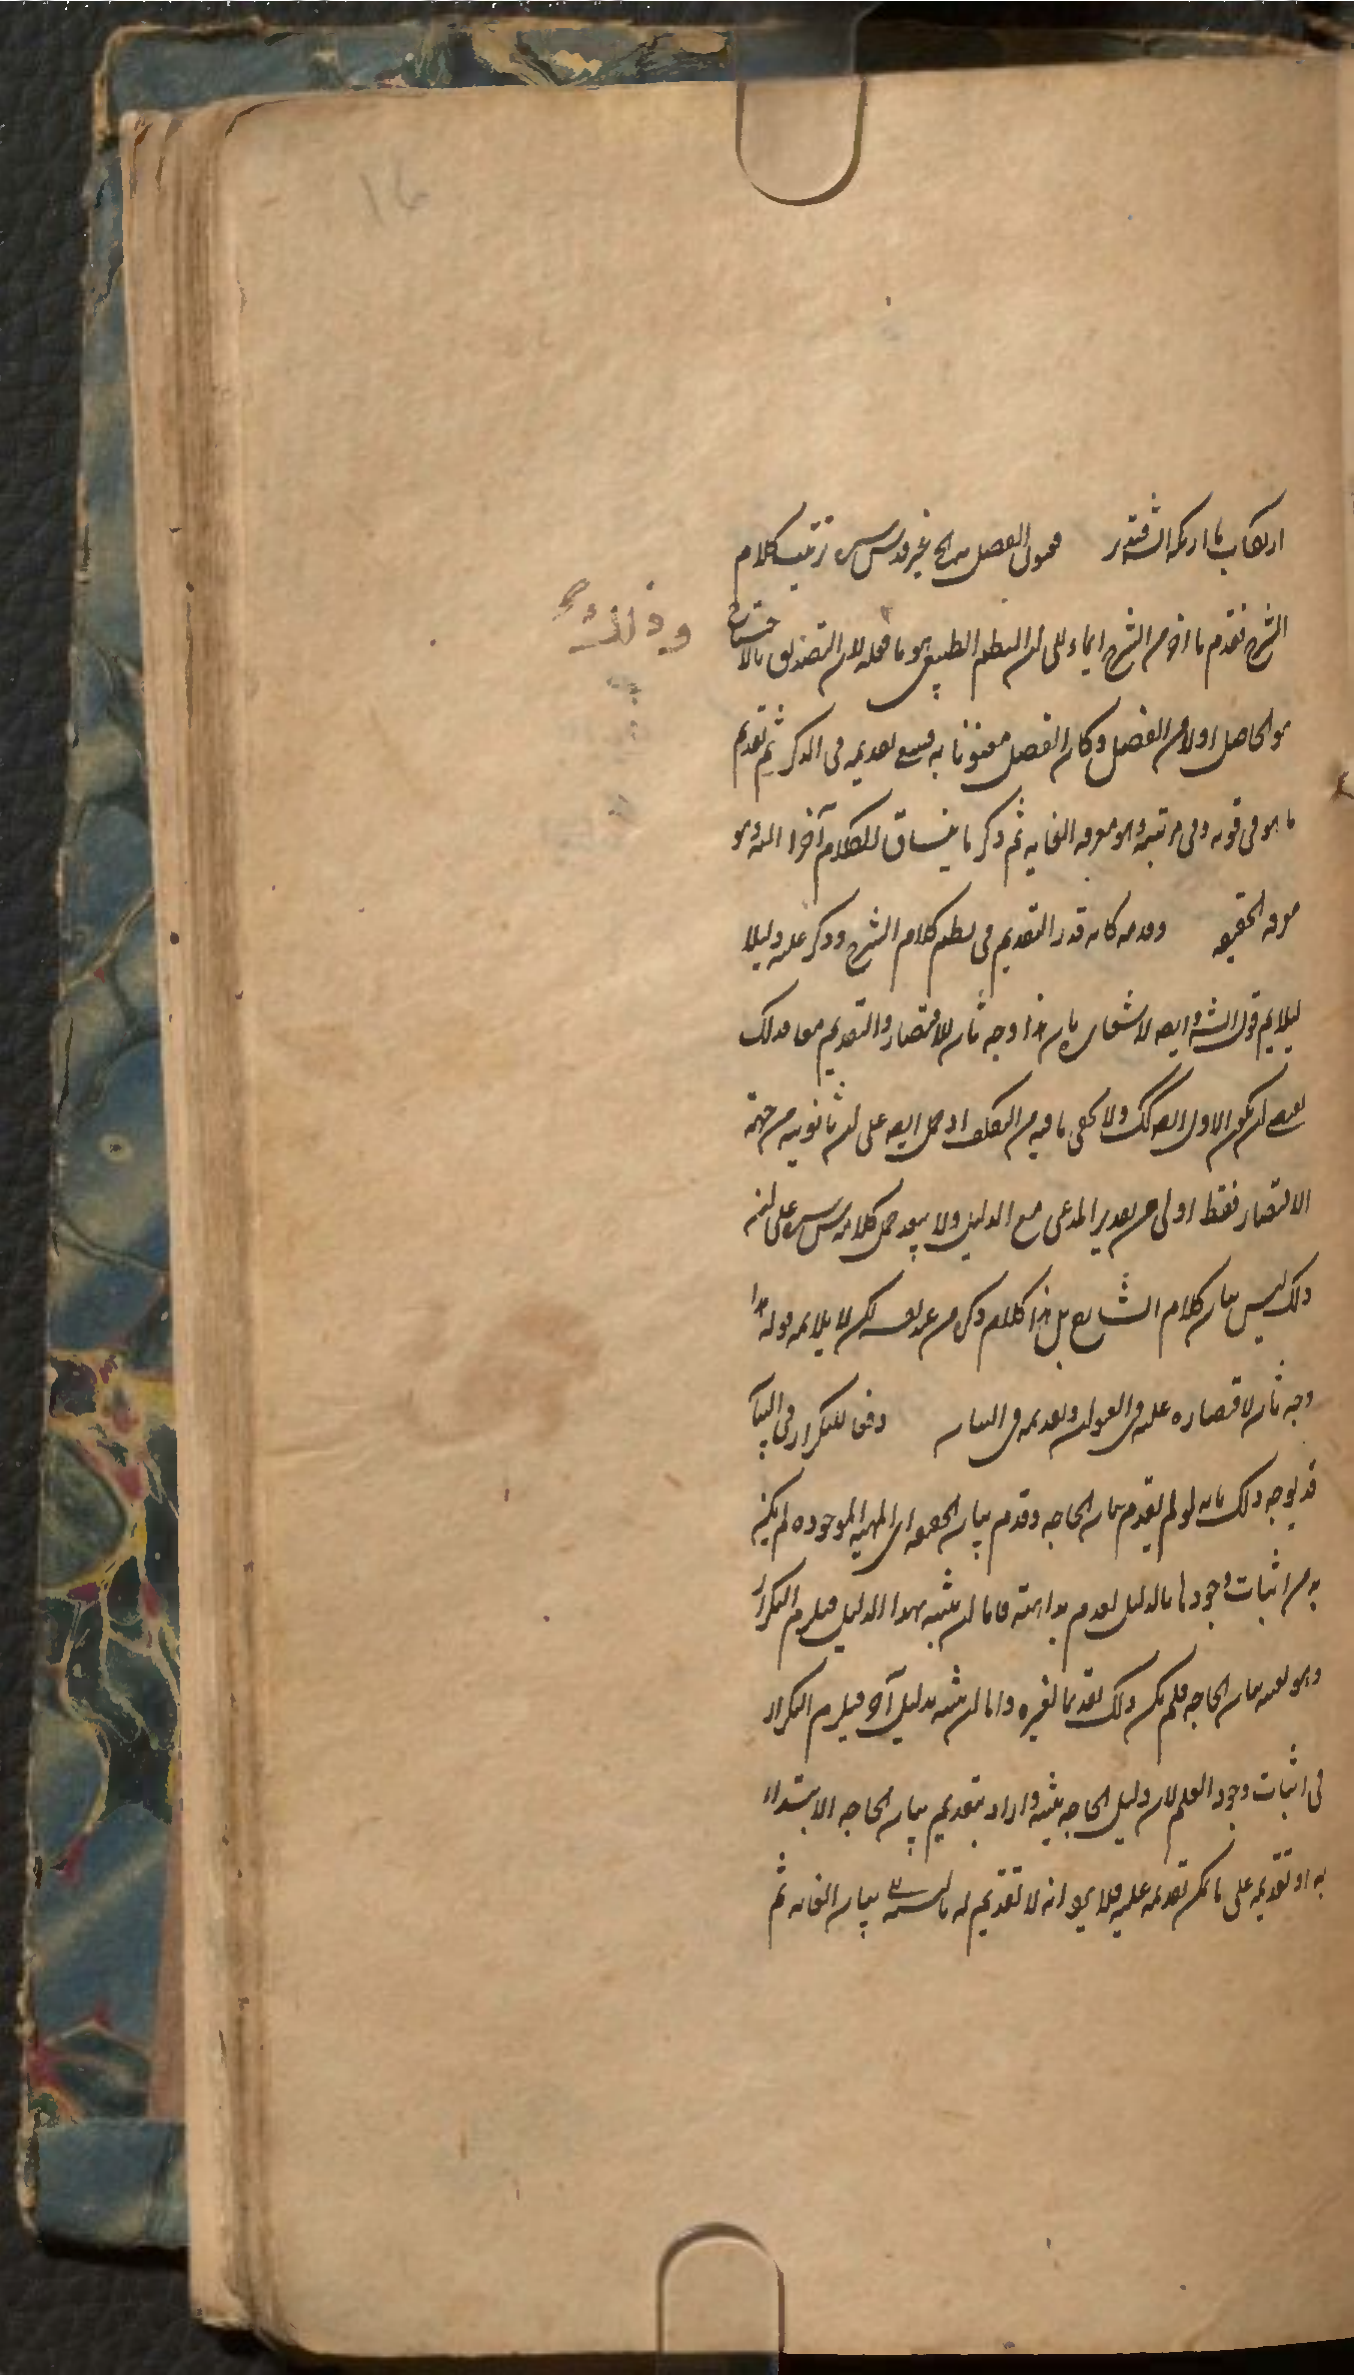 ارتكاب ما ارتكبه الش فتدبر فمحول الفصل غير قدس سره ترتيب كلام
الشرح فقدم ما اخر من الشرح ايماء الى ان النظم الطبيعى هو ما فعله لان التصديق بالاحتياج
هو الحاصل اولا من الفصل وكان الفصل معنونا به تقديمه فى الذكر ثم تقديم
ما هو فى قوته وفى مرتبته وهو معرفه الغايه ثم ذكر ما ينساق الكلام آخرا اليه وهو
معرفه الحقيقه وقدمه كانه قدر التقديم فى نظم كلام الشرح وذكر عليه دليلا
ليلايم قول الش وايضه لاشعاره بان هذا وجه ثان للاقتصار والتقديم معا فذلك
يقتضى ان يكون الاول ايضه كك ولا يخفى ما فيه من التكلف اذ حمل ايضه على ان ثانويته من جهة
الاقتصار فقط اولى من تقدير المدعى مع الدليل ولا يبعد حمل كلامه قدس سره على انه
ذلك ليس بيان كلام الشارح بل هذا كلام ذكره من عند نفسه لكن لا يلايمه قوله هذا
وجه ثان لاقتصاره عليه فى العنوان وتقديمه فى البيان دفعا للتكرار فى البيان
قد يوجه ذلك بانه لو لم يقدم بيان الحاجه وقدم بيان الحقيقه اى المهيه الموجوده لم يكن
بد من اثبات وجودها بالدليل لعدم بداهته فاما ان يثبته بهذا الدليل فيلزم التكرار
وهو بعينه بيان الحاجه فلم يكن ذلك تقديما لغيره واما ان يثبته بدليل آخر فيلزم التكرار
فى اثبات وجود العلم لان دليل الحاجه يثبته واراد بتقديم بيان الحاجه الابتداء
به او تقديمه على ما يمكن تقديمه عليه فلا يرد انه لا تقديم له بالنسبه بيان الغايه ثم
وذلك
١٦